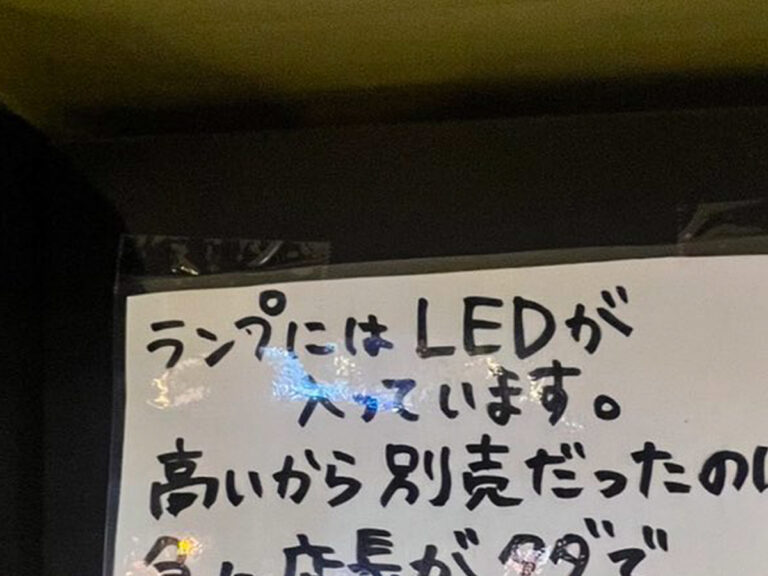 ランプには LEDが
入っています。
高いから 別売だったの
店長が タダで